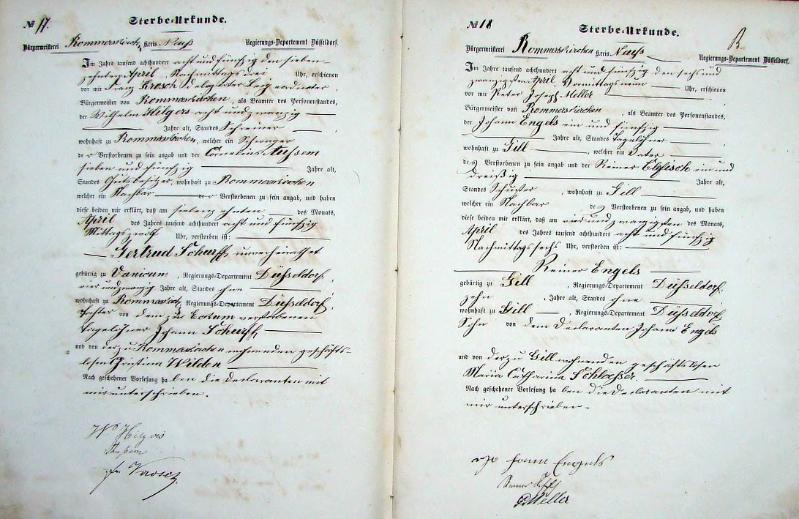 № 17.
Sterbe-Urkunde.
Bürgermeisterei Rommerskirchen Kreis Neuß Regierungs-Departement Düsseldorf.
Im Jahre tausend achthundert acht und fünfzig den sieben
zehnten April, Nachmittags drei Uhr, erschienen
vor mir Franz
Bürgermeister von Rommerskirchen, als Beamter des Personenstandes,
der Wilhelm Hilgers acht und zwanzig
Jahre alt, Standes Schreiner
wohnhaft zu Rommerskirchen, welcher ein Schwager
der Verstorbenen zu sein angab und der Cornelius Aussem
sieben und fünfzig Jahre alt,
Standes Gutsbesitzer, wohnhaft zu Rommerskirchen
welcher ein Nachbar der Verstorbenen zu sein angab, und haben
diese beiden mir erklärt, daß am siebenzehnten des Monats,
April des Jahres tausend achthundert acht und fünfzig
Mittags zwölf Uhr, verstorben ist:
Gertrud Schurff unverheirathet
gebürtig zu Vanicum, Regierungs-Departement Düsseldorf,
vier und zwanzig Jahre alt, Standes ohne
wohnhaft zu Rommerskirchen, Regierungs-Departement Düsseldorf,
Tochter von dem zu verstorbenen
Tagelöhner Johann Schurff,
und von der zu Rommerskirchen wohnenden geschäfts-
losen Christina Wilden
Nach geschehener Vorlesung haben die Declaranten mit
mir unterschrieben.
W. Hilgers
№ 18
Sterbe-Urkunde.
B.
Bürgermeisterei Rommerskirchen Kreis Neuss Regierungs-Departement Düsseldorf.
Im Jahre tausend achthundert acht und fünfzig den sechs und
zwanzigsten April Vormittags neun Uhr, erschienen
vor mir Peter Joseph Meller
Bürgermeister von Rommerskirchen, als Beamter des Personenstandes,
der Johann Engels ein und fünfzig
Jahre alt, Standes Tagelöhner
wohnhaft zu Gill, welcher ein Vater
des Verstorbenen zu sein angab und der Reiner ein und
dreißig Jahre alt,
Standes Schuster, wohnhaft zu Gill
welcher ein Nachbar des Verstorbenen zu sein angab, und haben
diese beiden mir erklärt, daß am vier und zwanzigsten des Monats,
April des Jahres tausend achthundert acht und fünfzig
Nachmittags sechs Uhr, verstorben ist:
Reiner Engels
gebürtig zu Gill, Regierungs-Departement Düsseldorf,
zehn Jahre alt, Standes ohne
wohnhaft zu Gill, Regierungs-Departement Düsseldorf
Sohn von dem Declaranten Johann Engels
und von der zu Gill wohnenden geschäftslosen
Maria Catharina Schlosser.
Nach geschehener Vorlesung haben die Declaranten mit
mir unterschrieben.
Johann Engels
Meller